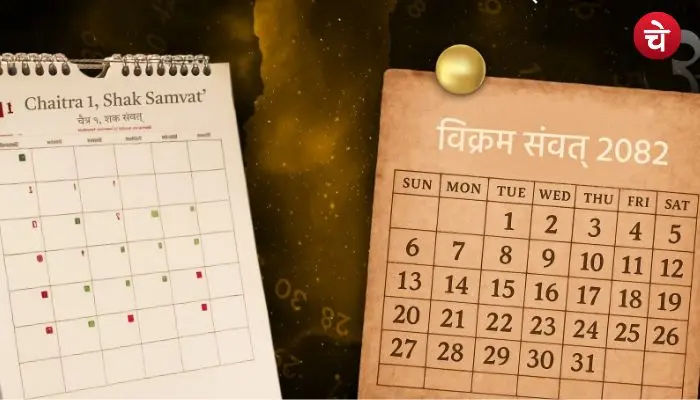 चे
1
Chaitra 1, Shak Samvat'
चैत्र १, शक संवत्
विक्रम संवत् 2082
SUN MON TUE WED THU FRI SAT
1 2 3 4 5
6 7 8 9 10 11 12
13 14 15 16 17 18 19
20 21 22 23 24 25 26
27 28 29 30 31
30
28